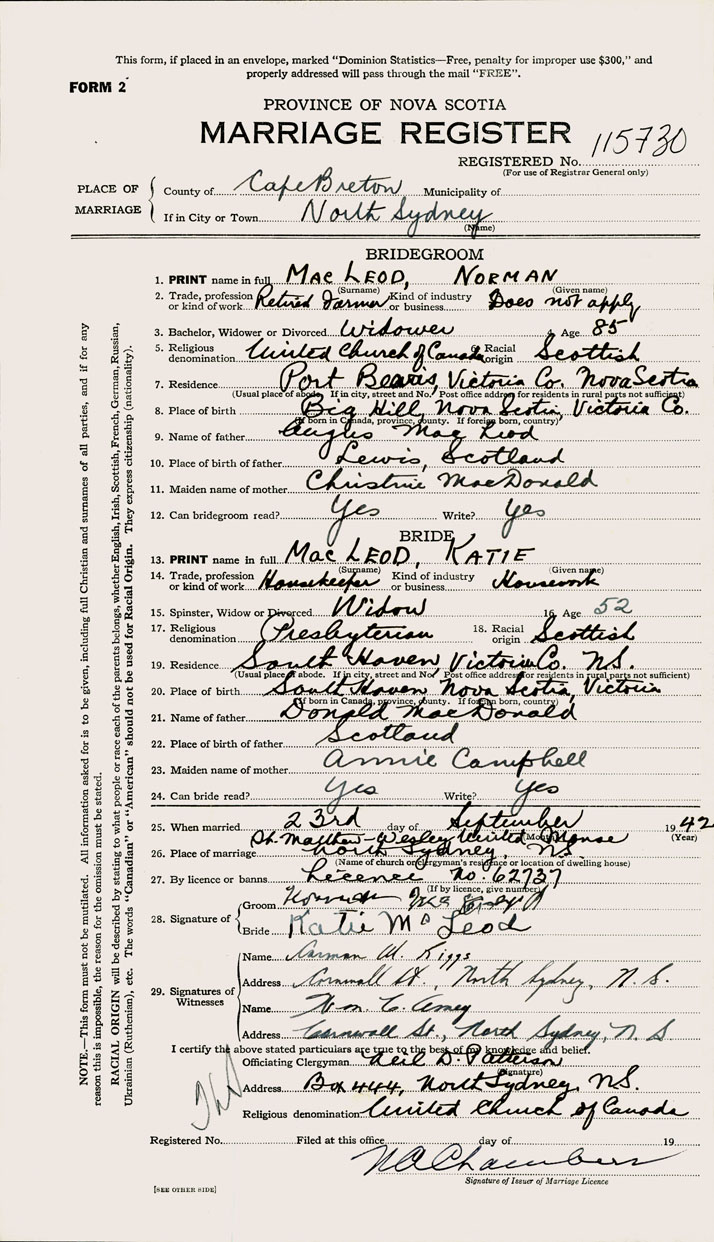 This form, if placed in an envelope, marked "Dominion Statistics—Free, penalty for improper use $300," and
properly addressed will pass through the mail "FREE".
FORM 2
PROVINCE OF NOVA SCOTIA
MARRIAGE REGISTER
115730
REGISTERED No.
(For use of Registrar General only)
PLACE OF MARRIAGE
County of Cape Breton Municipality of
If in City or Town North Sydney
(Name)
BRIDEGROOM
1. PRINT name in full MAC LEOD, NORMAN
(Surname) (Given name)
2. Trade, profession or kind of work Retired Farmer Kind of industry or business Does not apply
3. Bachelor, Widower or Divorced Widower 4. Age 85
5. Religious denomination United Church of Canada 6. Racial origin Scottish
7. Residence Port Bevis, Victoria Co. Nova Scotia
(Usual place of abode. If in city, street and No. Post office address for residents in rural parts not sufficient)
8. Place of birth Big Hill, Nova Scotia, Victoria Co.
(If born in Canada, province, county. If foreign born, country)
9. Name of father Angus Mac Leod
10. Place of birth of father Lewis, Scotland
11. Maiden name of mother Christine MacDonald
12. Can bridegroom read? Yes Write? Yes
BRIDE
13. PRINT name in full MAC LEOD, KATIE
(Surname) (Given name)
14. Trade, profession or kind of work Housekeeper Kind of industry or business Housework
15. Spinster, Widow or Divorced Widow 16. Age 52
17. Religious denomination Presbyterian 18. Racial origin Scottish
19. Residence South Haven, Victoria Co. N.S.
(Usual place of abode. If in city, street and No. Post office address for residents in rural parts not sufficient)
20. Place of birth South Haven Nova Scotia, Victoria
(If born in Canada, province, county. If foreign born, country)
21. Name of father Donald MacDonald
22. Place of birth of father Scotland
23. Maiden name of mother Annie Campbell
24. Can bride read? Yes Write? Yes
25. When married 23rd day of September 1942
(Month) (Year)
St. Matthew-Wesley United Manse
26. Place of marriage North Sydney, N.S.
(Name of church or clergyman's residence or location of dwelling house)
27. By licence or banns Licence No. 62737
(If by licence, give number)
28. Signature of
Groom
Bride Katie McLeod
29. Signatures of Witnesses
Name Norman W. Riggs
Address Cornwall St., North Sydney, N.S.
Name Wm. C. Amey
Address Cornwall St., North Sydney, N.S
I certify the above stated particulars are true to the best of my knowledge and belief.
Officiating Clergyman Neil D. Patterson
(Signature)
Address Box 444, North Sydney, N.S.
Religious denomination United Church of Canada
Registered No. Filed at this office day of 19
N A Chambers
Signature of Issuer of Marriage Licence
[SEE OTHER SIDE]
NOTE.—This form must not be mutilated. All information asked for is to be given, including full Christian and surnames of all parties, and if for any
reason this is impossible, the reason for the omission must be stated.
RACIAL ORIGIN will be described by stating to what people or race each of the parents belongs, whether English, Irish, Scottish, French, German, Russian,
Ukrainian (Ruthenian), etc. The words "Canadian" or "American" should not be used for Racial Origin. They express citizenship (nationality).